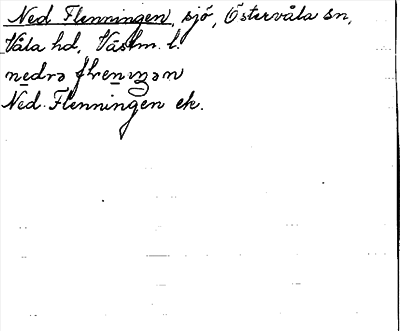 Ned Flenningen, sjö, Östervåla sn,
Våla hd, Västm. l.
nedrə flenıŋən
Ned. Flenningen ek.